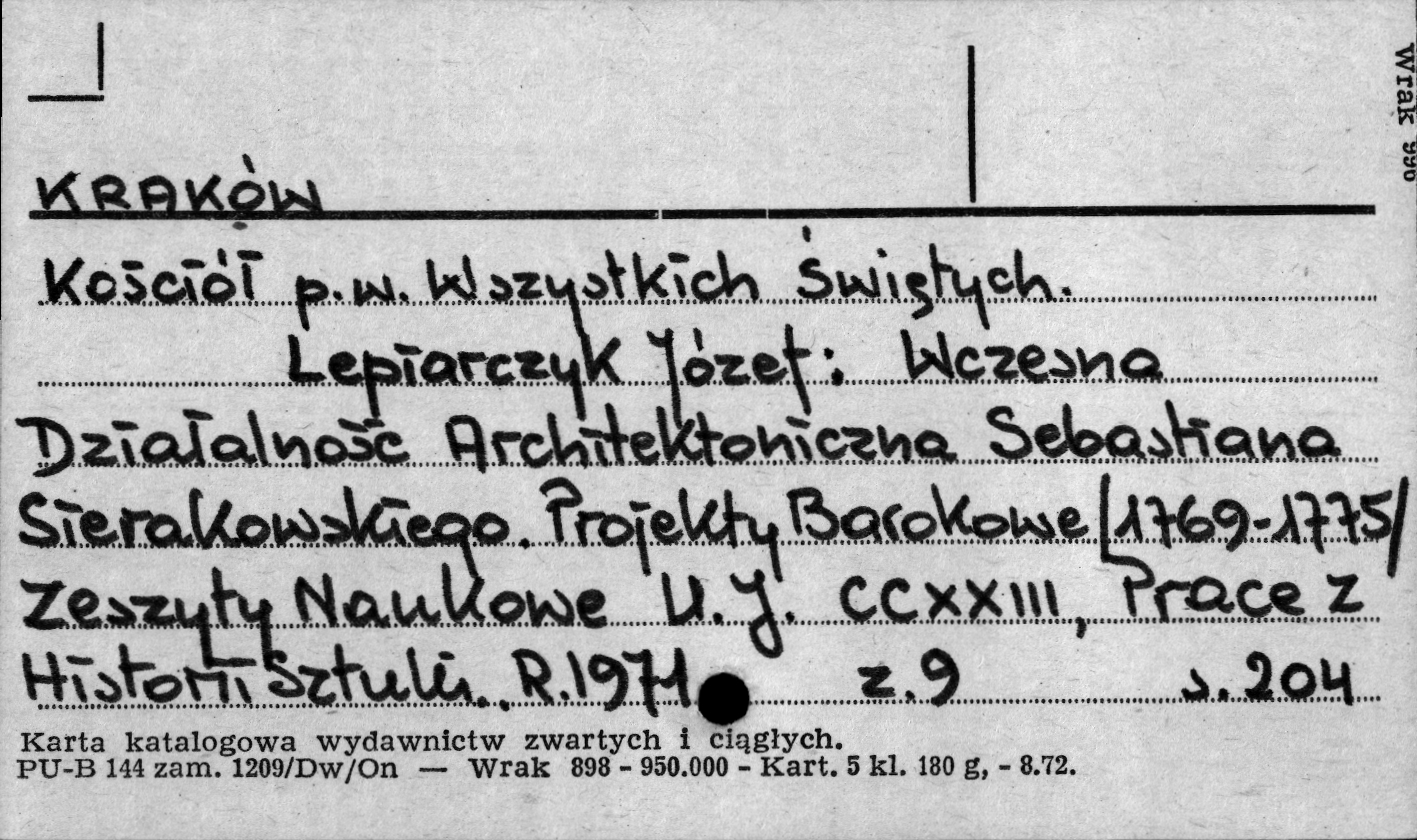 KRAKÓW
Kościół p.w. Wszystkich Świętych.
Lepiarczyk Józef: Wczesna
Działalność Architektoniczna Sebastiana
Sierakowskiego. Projekty Barokowe /1769-1775/
Zeszyty Naukowe U.J. CCXXIII, Prace z
Historii Sztuki. R.1971 z.9 s.204
Karta katalogowa wydawnictw zwartych i ciągłych.
PU-B 144 zam. 1209/Dw/On — Wrak 898 - 950.000 - Kart. 5 kl. 180 g, - 8.72.
Wrak 996